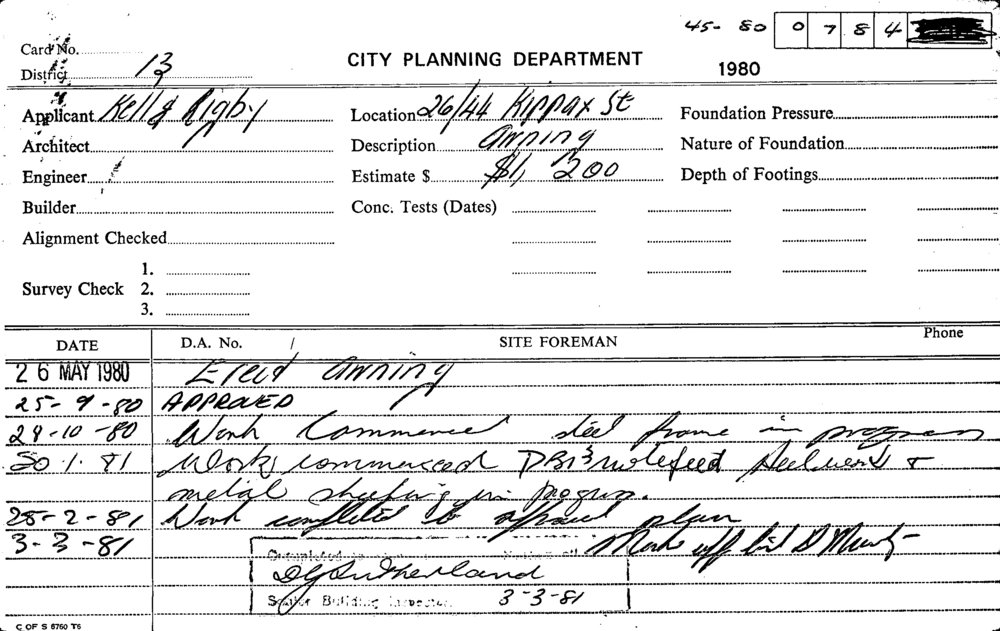 45- 80 0 7 8 4
Card No.
CITY PLANNING DEPARTMENT
1980
District 13
Applicant Kell & Rigby Location 26/44 Kippax St Foundation Pressure
Architect Description Awning Nature of Foundation
Engineer Estimate $ $1, 200 Depth of Footings
Builder Conc. Tests (Dates)
Alignment Checked
1.
Survey Check 2.
3.
DATE D.A. No. / SITE FOREMAN Phone
26 MAY 1980 Erect Awning
25-9-80 APPROVED
29-10-80 Work Commenced steel frame in progress
30.1.81 Work commenced notified steelwork &
metal sheeting in progress.
25-2-81 Work completed to approved plan
3-3-81 Mark off list D
Completed
DG Sutherland
Senior Building Inspector 3-3-81
C OF S 6760 T6